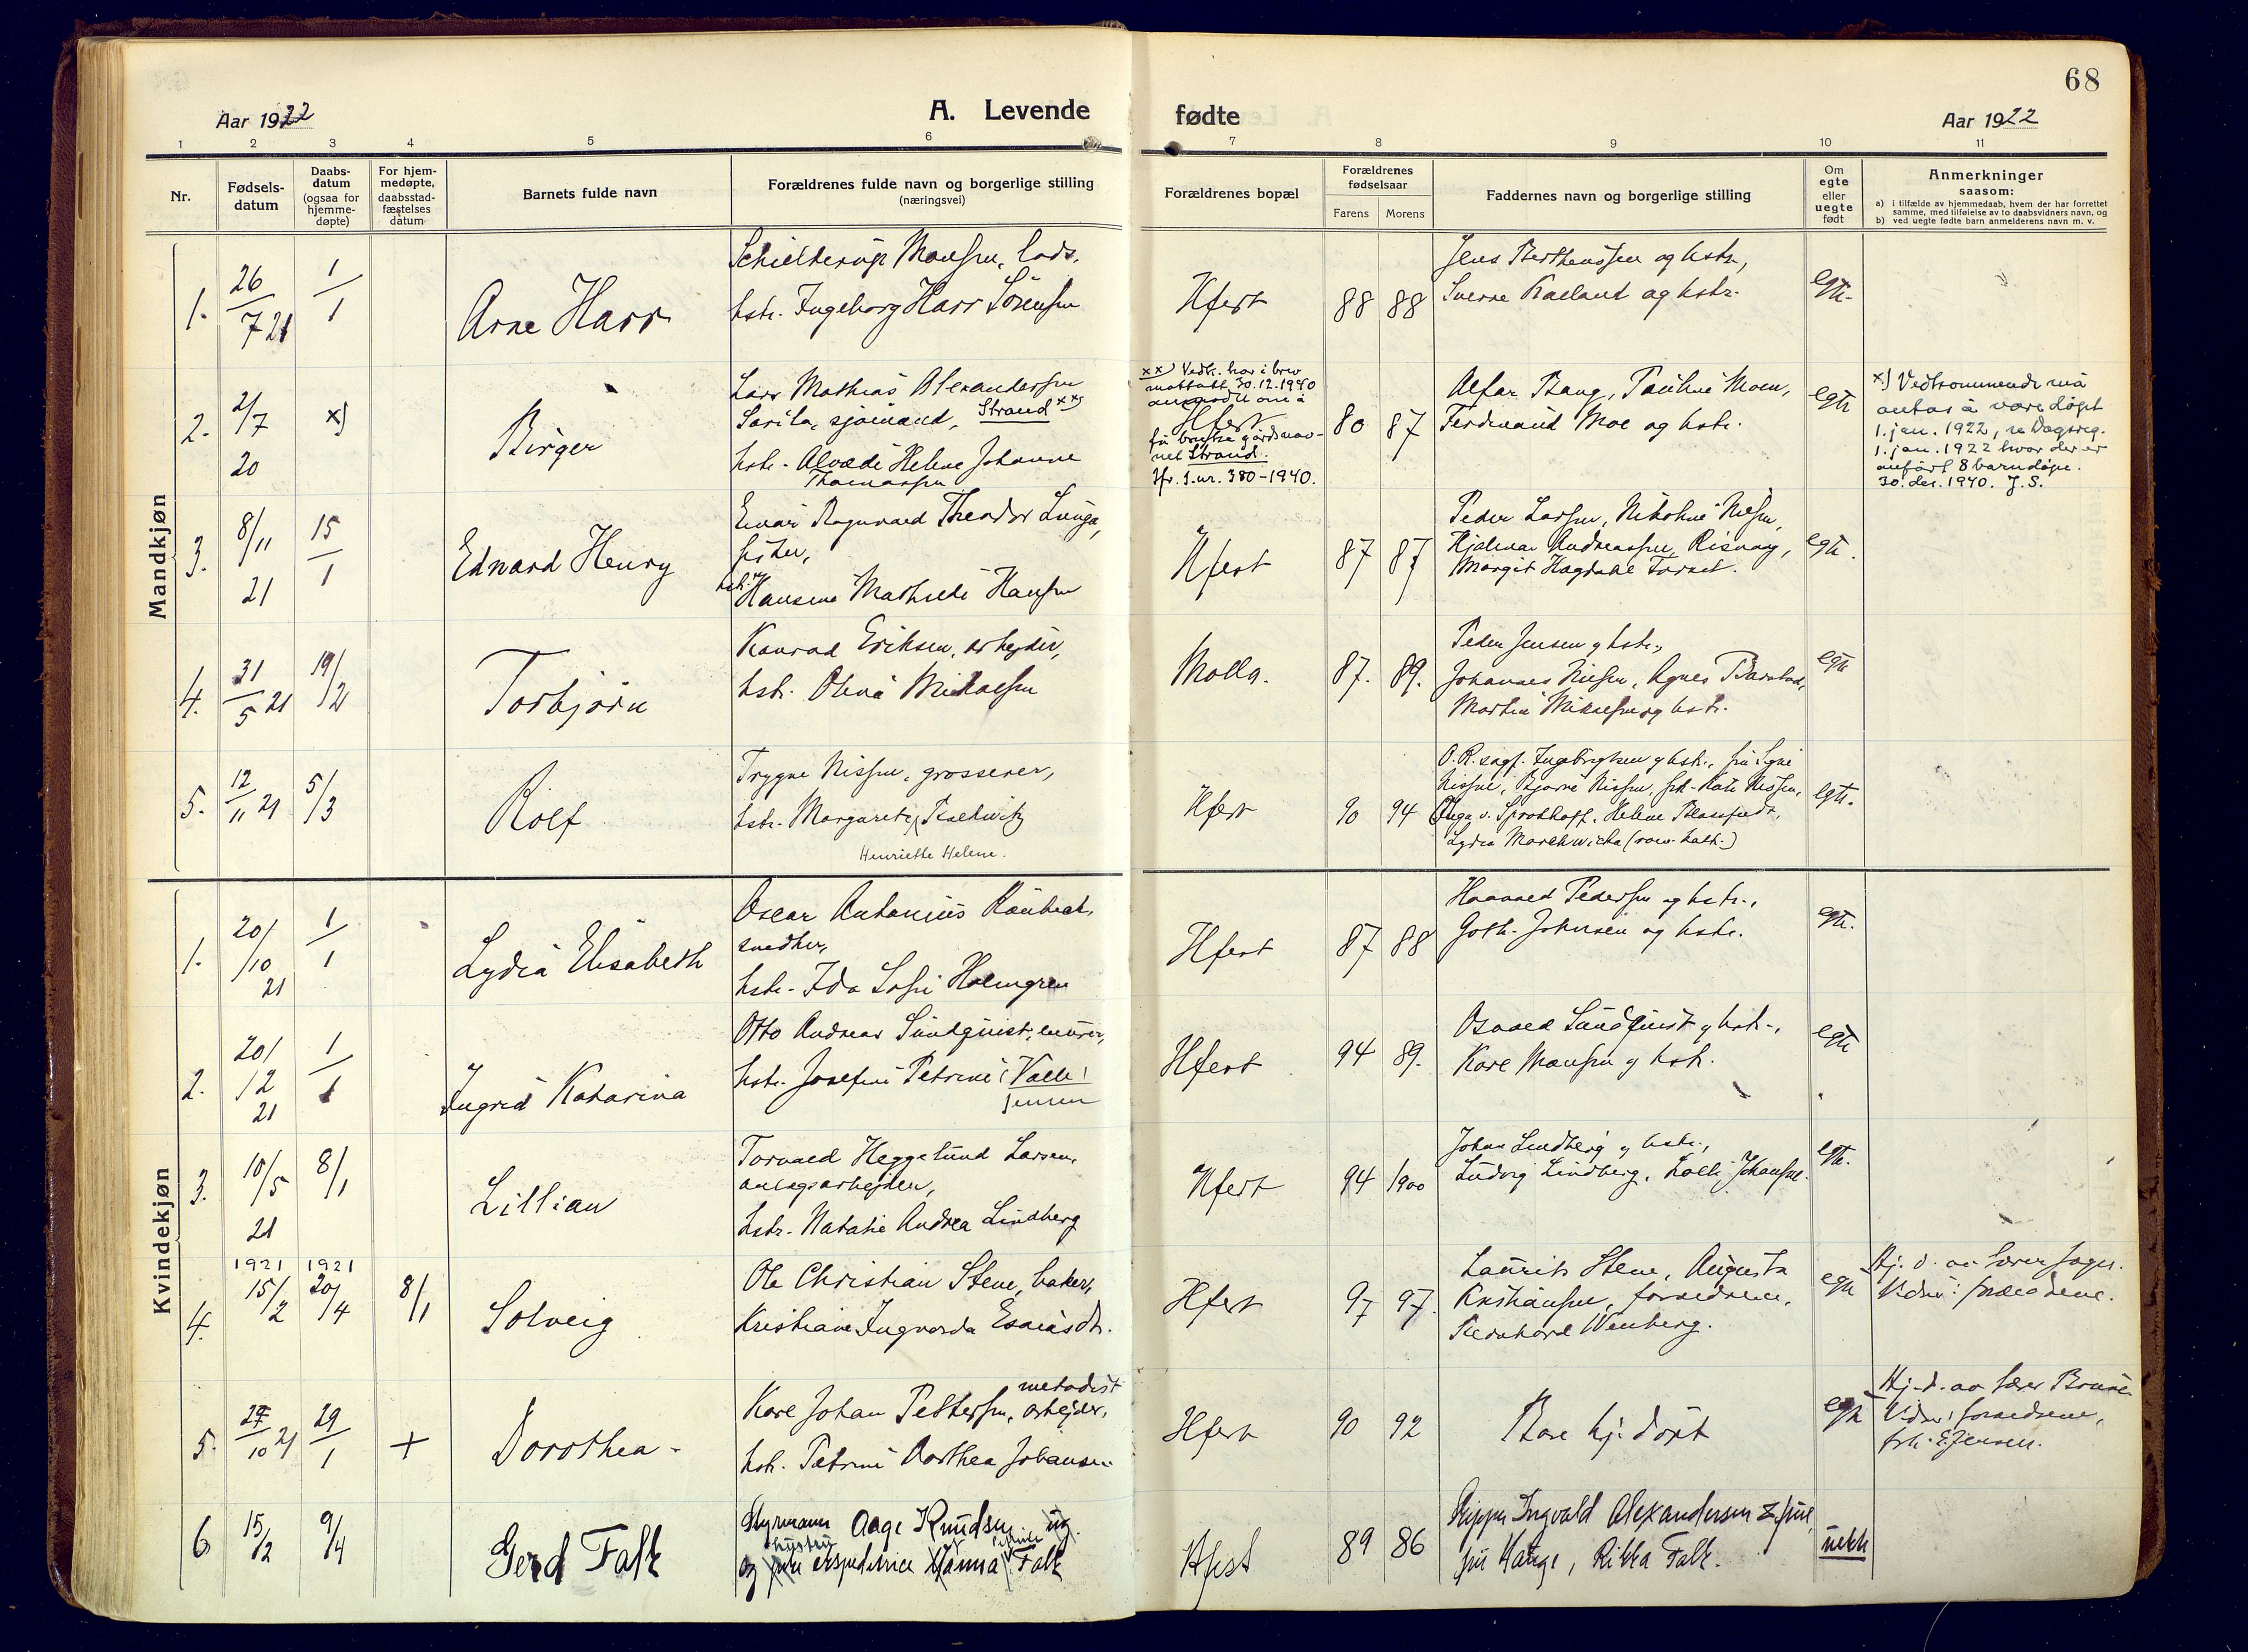 68
Aar 1922
A. Levende
fødte
Aar 1922
1 2 3 4 5 6 7 8 9 10 11
Nr.
Fødsels-
datum
Daabs-
datum
(ogsaa for
hjemme-
døpte)
For hjem-
medøpte,
daabsstad-
fæstelses
datum
Barnets fulde navn
Forældrenes fulde navn og borgerlige stilling
(næringsvei)
Forældrenes bopæl
Forældrenes
fødselsaar
Farens Morens
Faddernes navn og borgerlige stilling
Om
egte
eller
uegte
født
Anmerkninger
saasom:
a) i tilfælde av hjemmedaab, hvem der har forrettet
samme, med tilføielse av to daabsvidners navn, og
b) ved uegte fødte barn anmelderens navn m. v.
Mandkjøn
1. 26/7 21 1/1 Arne Harr
Schielderup Monsen, lods,
hstr. Ingeborg Harr Sørensen
Hfest 88 88
Jens Bertheussen og hstr,
Sverre Kaeland og hstr.
egte
2. 2/7 20 x) Birger
Lars Mathias Alexandersen
Sarila, sjømand, Strand xx)
hstr. Alvede Helene Johanne
Thomassen
xx) Vedk. har i brev
mottatt 30.12.1940
anmodet om å
Hfest
få bruke gårdsnav-
net Strand.
Jfr. J.nr. 380-1940.
80 87
Alfar Bang, Pauline Moen,
Ferdinand Moe og hstr.
egte
x) Vedkommende må
antas å være døpt
1. jan. 1922, se Dagsreg.
1. jan. 1922 hvor der er
anført 8 barn døpt.
30. des. 1940. J.S.
3. 8/11 21 15/1 Edvard Henry
Einar Ragnvald Theodor Lunga,
fisker,
hstr. Hansine Mathilde Hansen
Hfest 87 87
Peder Larsen, Nikoline Nilsen,
Hjalmar Andreassen, Risvaag,
Margit Hagdahl Forset.
egte.
4. 31/5 21 19/2 Torbjørn
Konrad Eriksen, arbejder,
hstr. Olina Mikaelsen
Molla. 87. 89.
Peder Jensen og hstr.,
Johannes Nilsen, Agnes Barstad,
Martin Mikalsen og hstr.
egte
5. 12/11 21 5/3 Rolf
Trygve Nissen, grosserer,
hstr. Margarete
Henriette Helene.
Hfest 90 94
O.R.sagf. Ingebrigtsen og hstr., fru Signe
Nissen, Bjarne Nissen, frk. Kate Nissen,
Olga v. Sprockhoff, Helene
Lydia
egte.
Kvindekjøn
1. 20/10 21 1/1 Lydia Elisabeth
Oscar Antonius Rønbeck,
snedker,
hstr. Ida Sofie Holmgren
Hfest 87 88
Haavald Pedersen og hstr.,
Goth. Johnsen og hstr.
egte.
2. 20/12 21 1/1 Ingrid Katarina
Otto Andreas Sundquist, murer,
hstr. Josefine Petrine (Valle)
Jensen
Hfest 94 89.
Osvald Sundquist og hstr.,
Karl Monsen og hstr.
egte
3. 10/5 21 8/1 Lillian
Torvald Heggelund Larsen,
anlægsarbejder,
hstr. Natalie Andrea Lindberg
Hfest 94 1900
Johan Lindberg og hstr.,
Ludvig Lindberg, Lolli Johansen.
egte.
1921 1921
4. 15/2 20/4 8/1 Solveig
Ole Christian Stene, baker,
Kristiane Ingvarda Esaiasdtr.
Hfest 97 97.
Laurits Stene, Augusta
Kristiansen, forældrene,
Bernhard Wenberg.
egte
Hj. d. av lærer
Vidner: forældrene.
5. 27/10 21 29/1 + Dorothea -
metodist
Karl Johan Pettersen, arbejder,
hstr. Petrine Dorthea Johansen
Hfest 90 92
Bare hj. døpt
egte
Hj. d. av lærer
Vidner: forældrene,
frk. E. Jensen.
6 15/2 9/4 Gerd Falk
Styrmann Aage Knudsen
hustru
og ekspeditrice Hanna Falk
Hfest 89 86
Skipper Ingvald Alexandersen & frue,
fru Hauge, Rikka Falk.
uekte